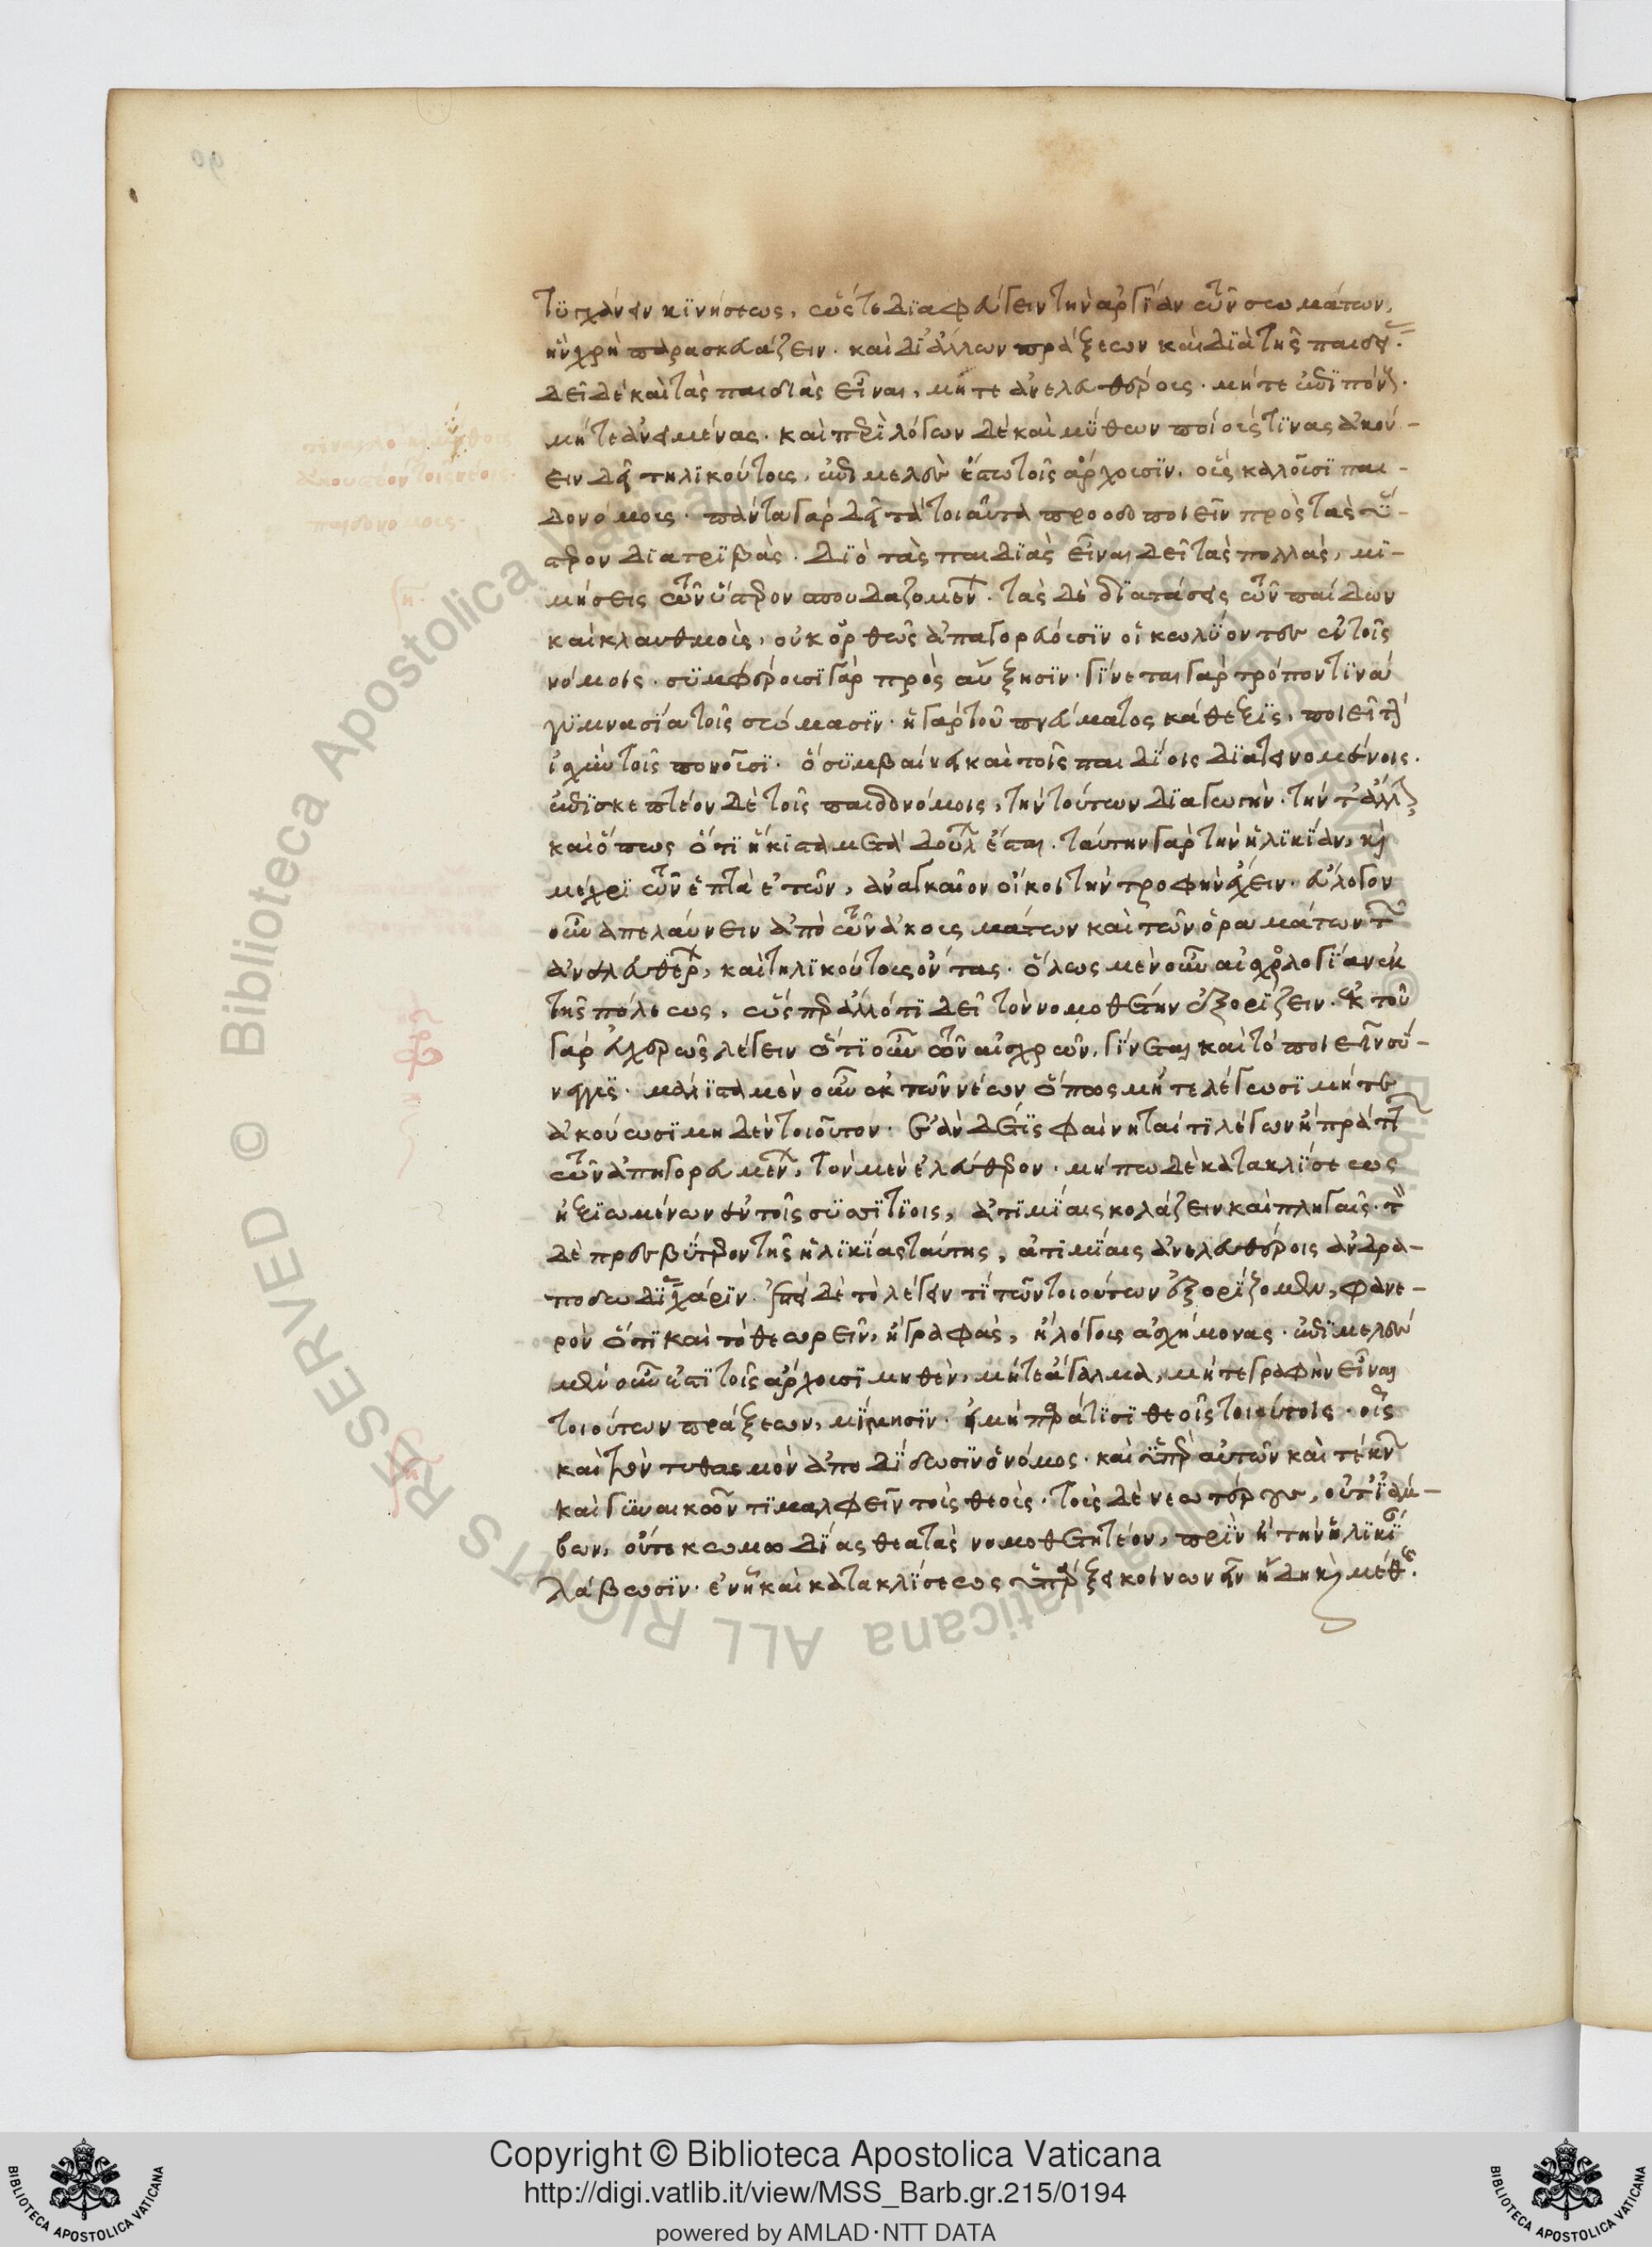 τυγχάνειν κινήσεως, ὥστε διαφεύγειν τὴν ἀργίαν τῶν σωμάτων,
ἣν χρὴ παρασκευάζειν. καὶ δι' ἄλλων πράξεων καὶ διὰ τῆς παιδιᾶς.
δεῖ δὲ καὶ τὰς παιδιὰς εἶναι, μήτε ἀνελευθέρους. μήτε ἐπιπόνους.
μήτε ἀνειμένας. καὶ περὶ λόγων δὲ καὶ μύθων ποίους τινὰς ἀκού-
ειν δεῖ τηλικούτους, ἐπιμελὲς ἔστω τοῖς ἄρχουσιν. οὓς καλοῦσι παι-
δονόμους. πάντα γὰρ δεῖ τὰ τοιαῦτα προοδοποιεῖν πρὸς τὰς ὕ-
στερον διατριβάς. διὸ τὰς παιδιὰς εἶναι δεῖ τὰς πολλὰς, μι-
μήσεις τῶν ὕστερον σπουδαζομένων. τὰς δὲ διατάσεις τῶν παίδων
καὶ κλαυθμοὺς, οὐκ ὀρθῶς ἀπαγορεύουσιν οἱ κωλύοντες ἐν τοῖς
νόμοις. συμφέρουσι γὰρ πρὸς αὔξησιν. γίνεται γὰρ τρόπον τινὰ
γυμνασία τοῖς σώμασιν. ἡ γὰρ τοῦ πνεύματος κάθεξις, ποιεῖ τὴν
ἰσχὺν τοῖς πονοῦσι. ὃ συμβαίνει καὶ τοῖς παιδίοις διατεινομένοις.
ἐπισκεπτέον δὲ τοῖς παιδονόμοις, τὴν τούτων διαγωγὴν. τήν τ' ἄλλην
καὶ ὅπως ὅτι ἥκιστα μετὰ δούλων ἔσται. ταύτην γὰρ τὴν ἡλικίαν, καὶ
μέχρι τῶν ἑπτὰ ἐτῶν, ἀναγκαῖον οἴκοι τὴν τροφὴν ἔχειν. εὔλογον
οὖν ἀπελαύνειν ἀπὸ τῶν ἀκουσμάτων καὶ τῶν ὁραμάτων τῶν
ἀνελευθέρων, καὶ τηλικούτους ὄντας. ὅλως μὲν οὖν αἰσχρολογίαν ἐκ
τῆς πόλεως, ὥσπερ ἄλλό τι δεῖ τὸν νομοθέτην ἐξορίζειν. ἐκ τοῦ
γὰρ εὐχερῶς λέγειν ὁτιοῦν τῶν αἰσχρῶν, γίνεται καὶ τὸ ποιεῖν σύ-
νεγγυς. μάλιστα μὲν οὖν ἐκ τῶν νέων ὅπως μήτε λέγωσι μήτε
ἀκούωσι μηδὲν τοιοῦτον. ἐὰν δέ τις φαίνηταί τι λέγων ἢ πράττων
τῶν ἀπηγορευμένων, τὸν μὲν ἐλεύθερον. μήπω δὲ κατακλίσεως
ἠξιωμένων ἐν τοῖς συσσιτίοις, ἀτιμίαις κολάζειν καὶ πληγαῖς. τὸν
δὲ πρεσβύτερον τῆς ἡλικίας ταύτης, ἀτιμίαις ἀνελευθέροις ἀνδρα-
ποδωδίας χάριν. ἐπεὶ δὲ τὸ λέγειν τι τῶν τοιούτων ἐξορίζομεν, φανε-
ρὸν ὅτι καὶ τὸ θεωρεῖν, ἢ γραφὰς, ἢ λόγους ἀσχήμονας. ἐπιμελὲς
μὲν οὖν ἔστι τοῖς ἄρχουσι μηθὲν, μήτε ἄγαλμα, μήτε γραφὴν εἶναι
τοιούτων πράξεων, μίμησιν. εἰ μὴ παρά τισι θεοῖς τοιούτοις. οἷς
καὶ τὸν τωθασμὸν ἀποδίδωσιν ὁ νόμος. καὶ ὑπὲρ αὐτῶν καὶ τέκνων
καὶ γυναικῶν τιμαλφεῖν τοὺς θεούς. τοὺς δὲ νεωτέρους, οὔτ' ἰάμ-
βων, οὔτε κωμωδίας θεατὰς νομοθετητέον, πρὶν ἢ τὴν ἡλικίαν
λάβωσιν. ἐν ᾗ καὶ κατακλίσεως ὑπάρξει κοινωνεῖν ἤδη καὶ μέθης.
Copyright © Biblioteca Apostolica Vaticana
http://digi.vatlib.it/view/MSS_Barb.gr.215/0194
powered by AMLAD·NTT DATA